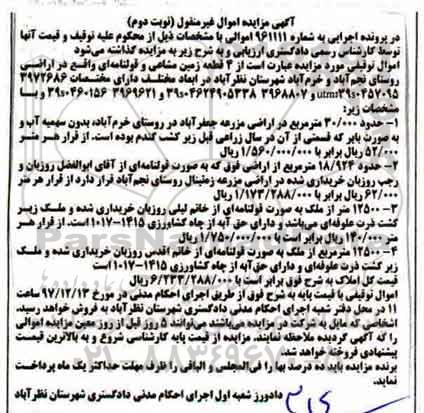 آگهی مزایده اموال غیرمنقول (نوبت دوم)
در پرونده اجرایی به شماره ۹۶۱۱۱۱ اموالی با مشخصات ذیل از محکوم علیه توقیف و قیمت آنها
توسط کارشناس رسمی دادگستری ارزیابی و به شرح زیر به مزایده گذاشته می‌شود
اموال توقیفی مورد مزایده عبارت است از ۴ قطعه زمین مشاعی و قولنامه‌ای واقع در اراضی
روستای نجم‌آباد و خرم‌آباد شهرستان نظرآباد در ابعاد مختلف دارای مختصات ۳۹۷۲۶۸۶
utm:۳۹s۰۴۵۷۰۹۵ و ۳۹۶۸۸۰۷ ۳۹s۰۴۶۲۴۹۰۵۳۳۸ و ۳۹۶۹۶۲۱ ۳۹s۰۴۶۰۱۵۶ و با
مشخصات زیر:
۱- حدود ۳۰/۰۰۰ مترمربع در اراضی مزرعه جعفرآباد در روستای خرم‌آباد، بدون سهمیه آب و
به صورت بایر که قسمتی از آن در سال زراعی قبل زیر کشت گندم بوده است. از قرار هر متر
۵۲/۰۰۰ ریال برابر با ۱/۵۶۰/۰۰۰/۰۰۰ ریال
۲- حدود ۱۸/۹۲۴ مترمربع از اراضی فوق که به صورت قولنامه‌ای از آقای ابوالفضل روزبان و
رجب روزبان خریداری شده در اراضی مزرعه زمینال روستای نجم‌آباد قرار دارد از قرار هر متر
۶۲/۰۰۰ ریال برابر با ۱/۱۷۳/۲۸۸/۰۰۰ ریال
۳- ۱۲۵۰۰ متر از ملک به صورت قولنامه‌ای از خانم لیلی روزبان خریداری شده و ملک زیر
کشت ذرت علوفه‌ای می‌باشد و دارای حق‌آبه از چاه کشاورزی ۱۴۱۵-۱۰۱۷ است. از قرار هر
متر ۱۴۰/۰۰۰ ریال برابر است با ۱/۷۵۰/۰۰۰/۰۰۰ ریال
۴- ۱۲۵۰۰ مترمربع از ملک به صورت قولنامه‌ای از خانم اقدس روزبان خریداری شده و ملک
زیر کشت ذرت علوفه‌ای و دارای حق‌آبه از چاه کشاورزی ۱۴۱۵-۱۰۱۷ است
قیمت کل املاک به شرح فوق برابر است با ۶/۲۳۳/۲۸۸/۰۰۰ ریال
اموال توقیفی با قیمت پایه به شرح فوق از طریق اجرای احکام مدنی در مورخ ۹۷/۱۲/۱۳ ساعت
۱۱ در محل دفتر شعبه اجرای احکام مدنی دادگستری شهرستان نظرآباد به فروش خواهد رسید.
اشخاصی که مایل به شرکت در مزایده می‌باشد می‌توانند ۵ روز قبل از روز معین مزایده اموالی
را که آگهی گردیده ملاحظه نمایند. مزایده از قیمت پایه کارشناسی شروع و به بالاترین قیمت
پیشنهادی فروخته خواهد شد.
برنده مزایده باید ده درصد بها را فی‌المجلس و الباقی را ظرف مهلت حداکثر یک ماه پرداخت
نماید.
دادورز شعبه اول اجرای احکام مدنی دادگستری شهرستان نظرآباد